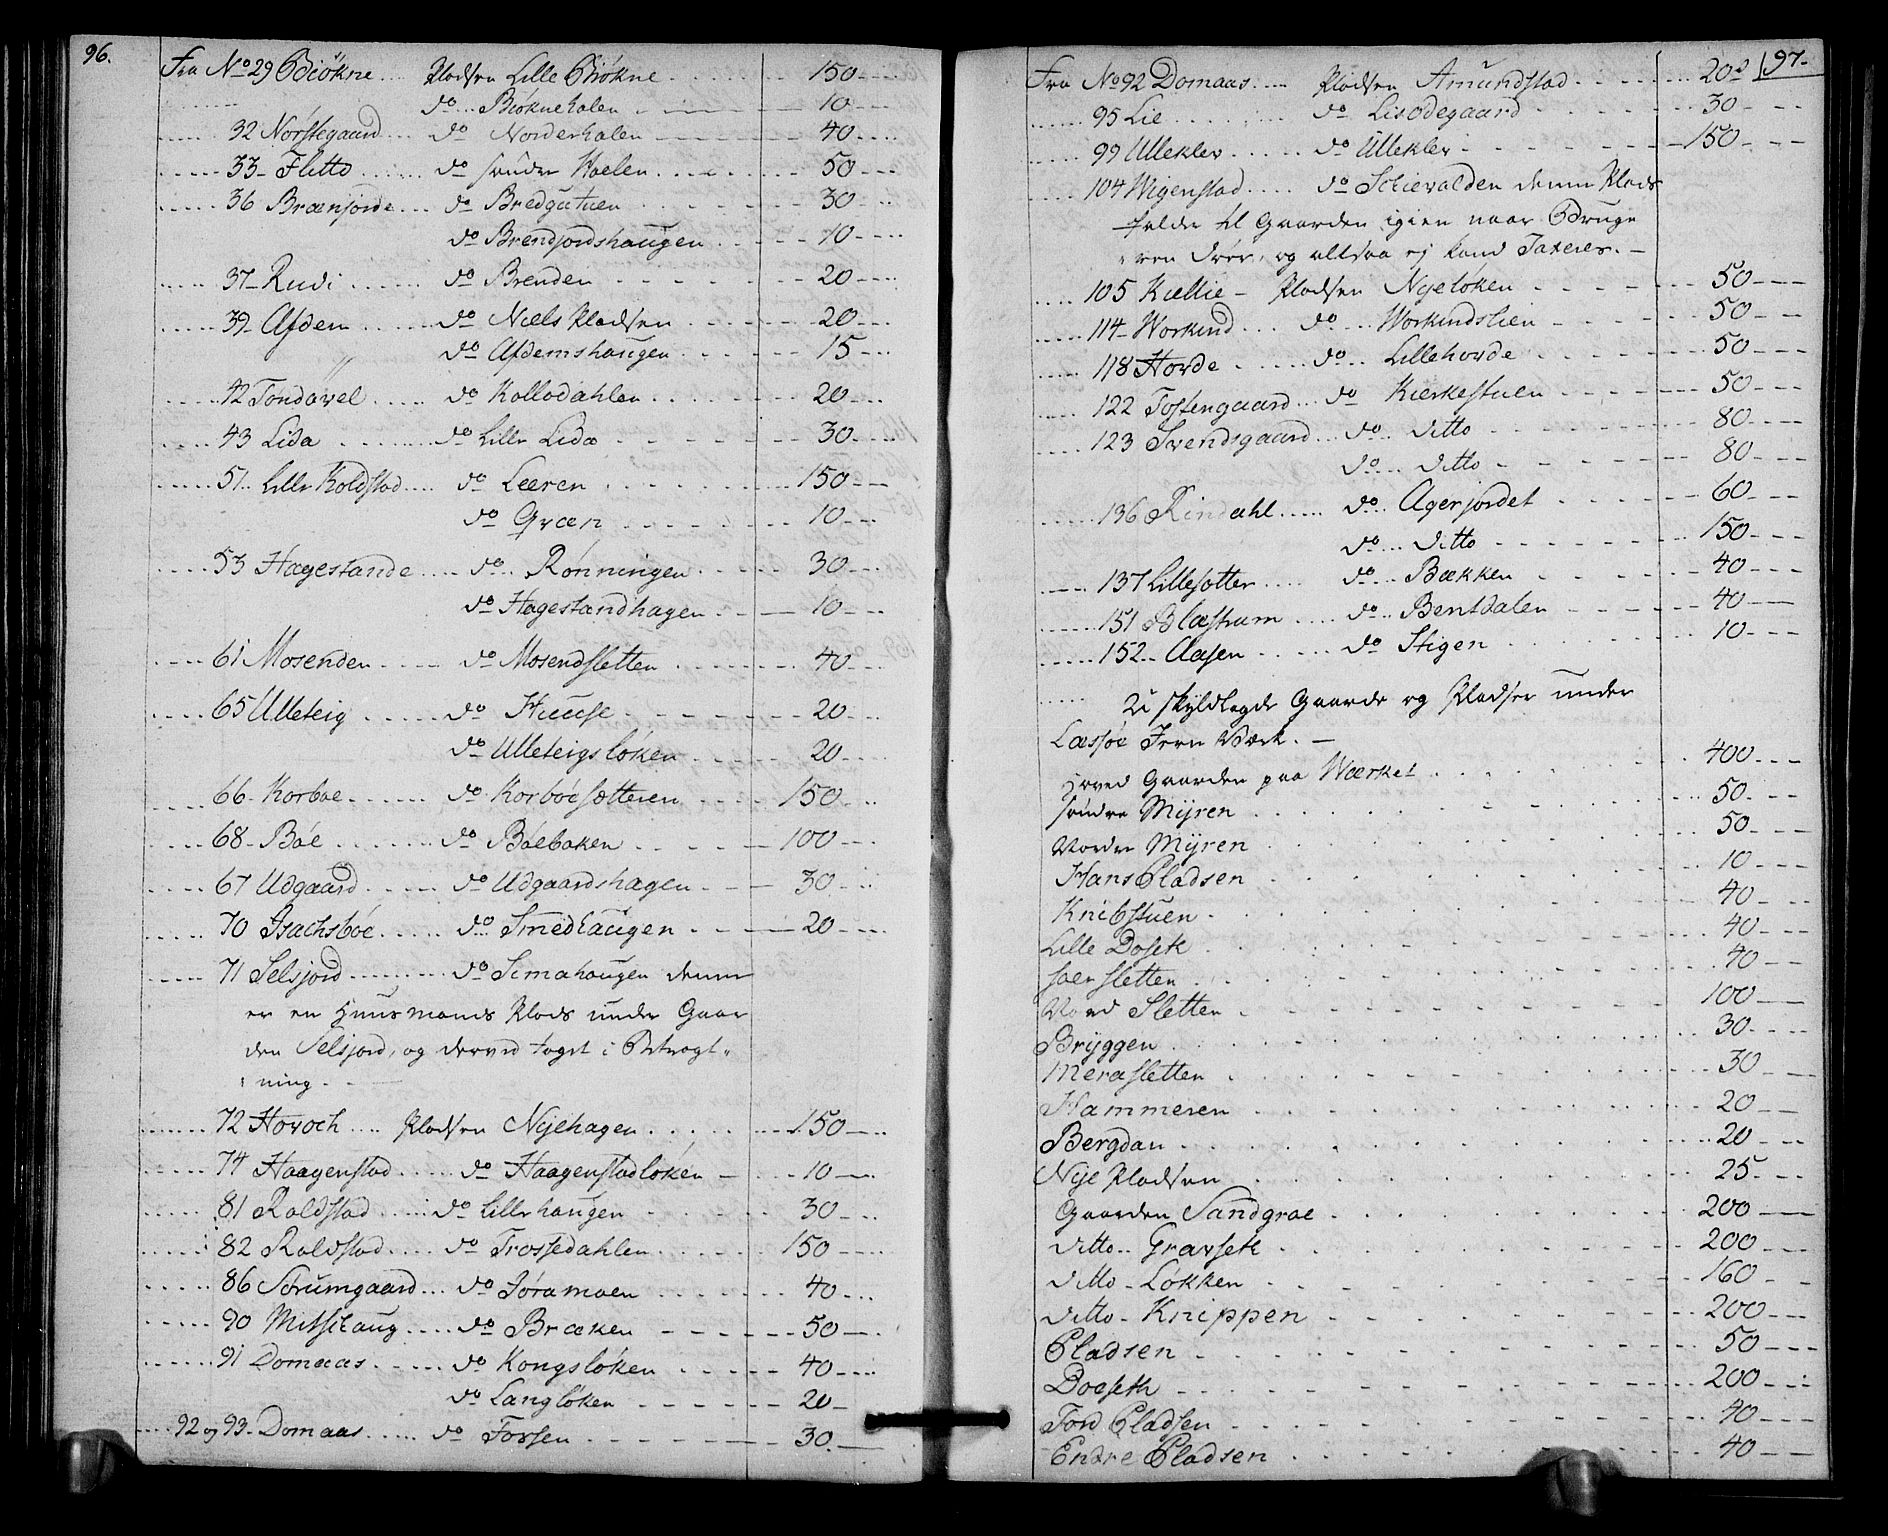 96.
Fra No 29 Biökne .... Pladsen Lille Biøkne 150
do Biøknehalen 10
32 Norstegaard do Norderhalen 40
33 Flitto do søndre Haelen 50
36 Brænjorde do Bredgutuen 30
do Brendjordshaugen 10
37 Rudi do Brenden 20
39 Afdem do Niels Pladsen 20
" do Afdemshaugen 15
42 Tondavel do Kollodahlen 20
43 Lida do Lille Lida 30
51 Lille Koldstad do Leeren 150
do Qvæn 10
53 Hagestande do Rønningen 30
do Hagestandhagen 10
61 Mosenden do Mosendsletten 40
65 Ulleteig do Huuse 20
do Ulleteigsløken 20
66 Korboe do Korböesætteren 150
68 Böe do Böebaken 100
67 Udgaard do Udgaardshagen 30
70 Isachsböe do Smedhaugen 20
71 Selsjord do Simahaugen denne
er en Huusmands Plads under Gaar
den Selsjord, og derved taget i Betragt-
ning.
72 Horoch Pladsen Nyehagen 150
74 Haagenstad do Haagenstadløken 10
81 Roldstad do Lillehaugen 30
82 Roldstad do Trossedahlen 150
86 Sørumgaard do Jøramoen 40
90 Mitshaug do Bræken 50
91 Domaas do Kongsløken 40
do Langløken 20
92 og 93 Domaas do Forsen 30
97
Fra No 92 Domaas Pladsen Amundstad 20
95 Lie do Lisødegaard 30
99 Ulleklev do Ulleklev 150
104 Wigenstad do Schievolden denne Plads
falder til Gaarden igien naar Bruge
ren døer, og altsaa ej kand Taxeres.
105 Kiellie Pladsen Nyeløken 50
114 Workind do Workindslien 50
118 Horde do Lillehorde 50
122 Tostengaard do Kierkestuen 50
123 Svendsgaard do ditto 80
do ditto 80
136 Rindahl do Agerjordet 60
do ditto 150
137 Lillesætter do Bækken 40
151 Blæstrum do Bentdalen 40
152 Aasen do Stigen 10
U skyldlagde Gaarde og Pladser under
Læssøe Jern Værk.
Hoved Gaarden paa Wærket 400
søndre Myren 50
Nordre Myren 50
Hans Pladsen 10
Knibstuen 40
Lille Dosek 40
søer sletten 40
Nord Sletten 100
Bryggen 30
Merasletten 30
Hammeren 20
Bergdan 20
Nye Pladsen 25
Gaarden Sandgroe 200
ditto Gravsek 200
ditto Løkken 160
ditto Knippen 200
Pladsen 50
Doeseth 200
Tord Pladsen 40
Endre Pladsen 40